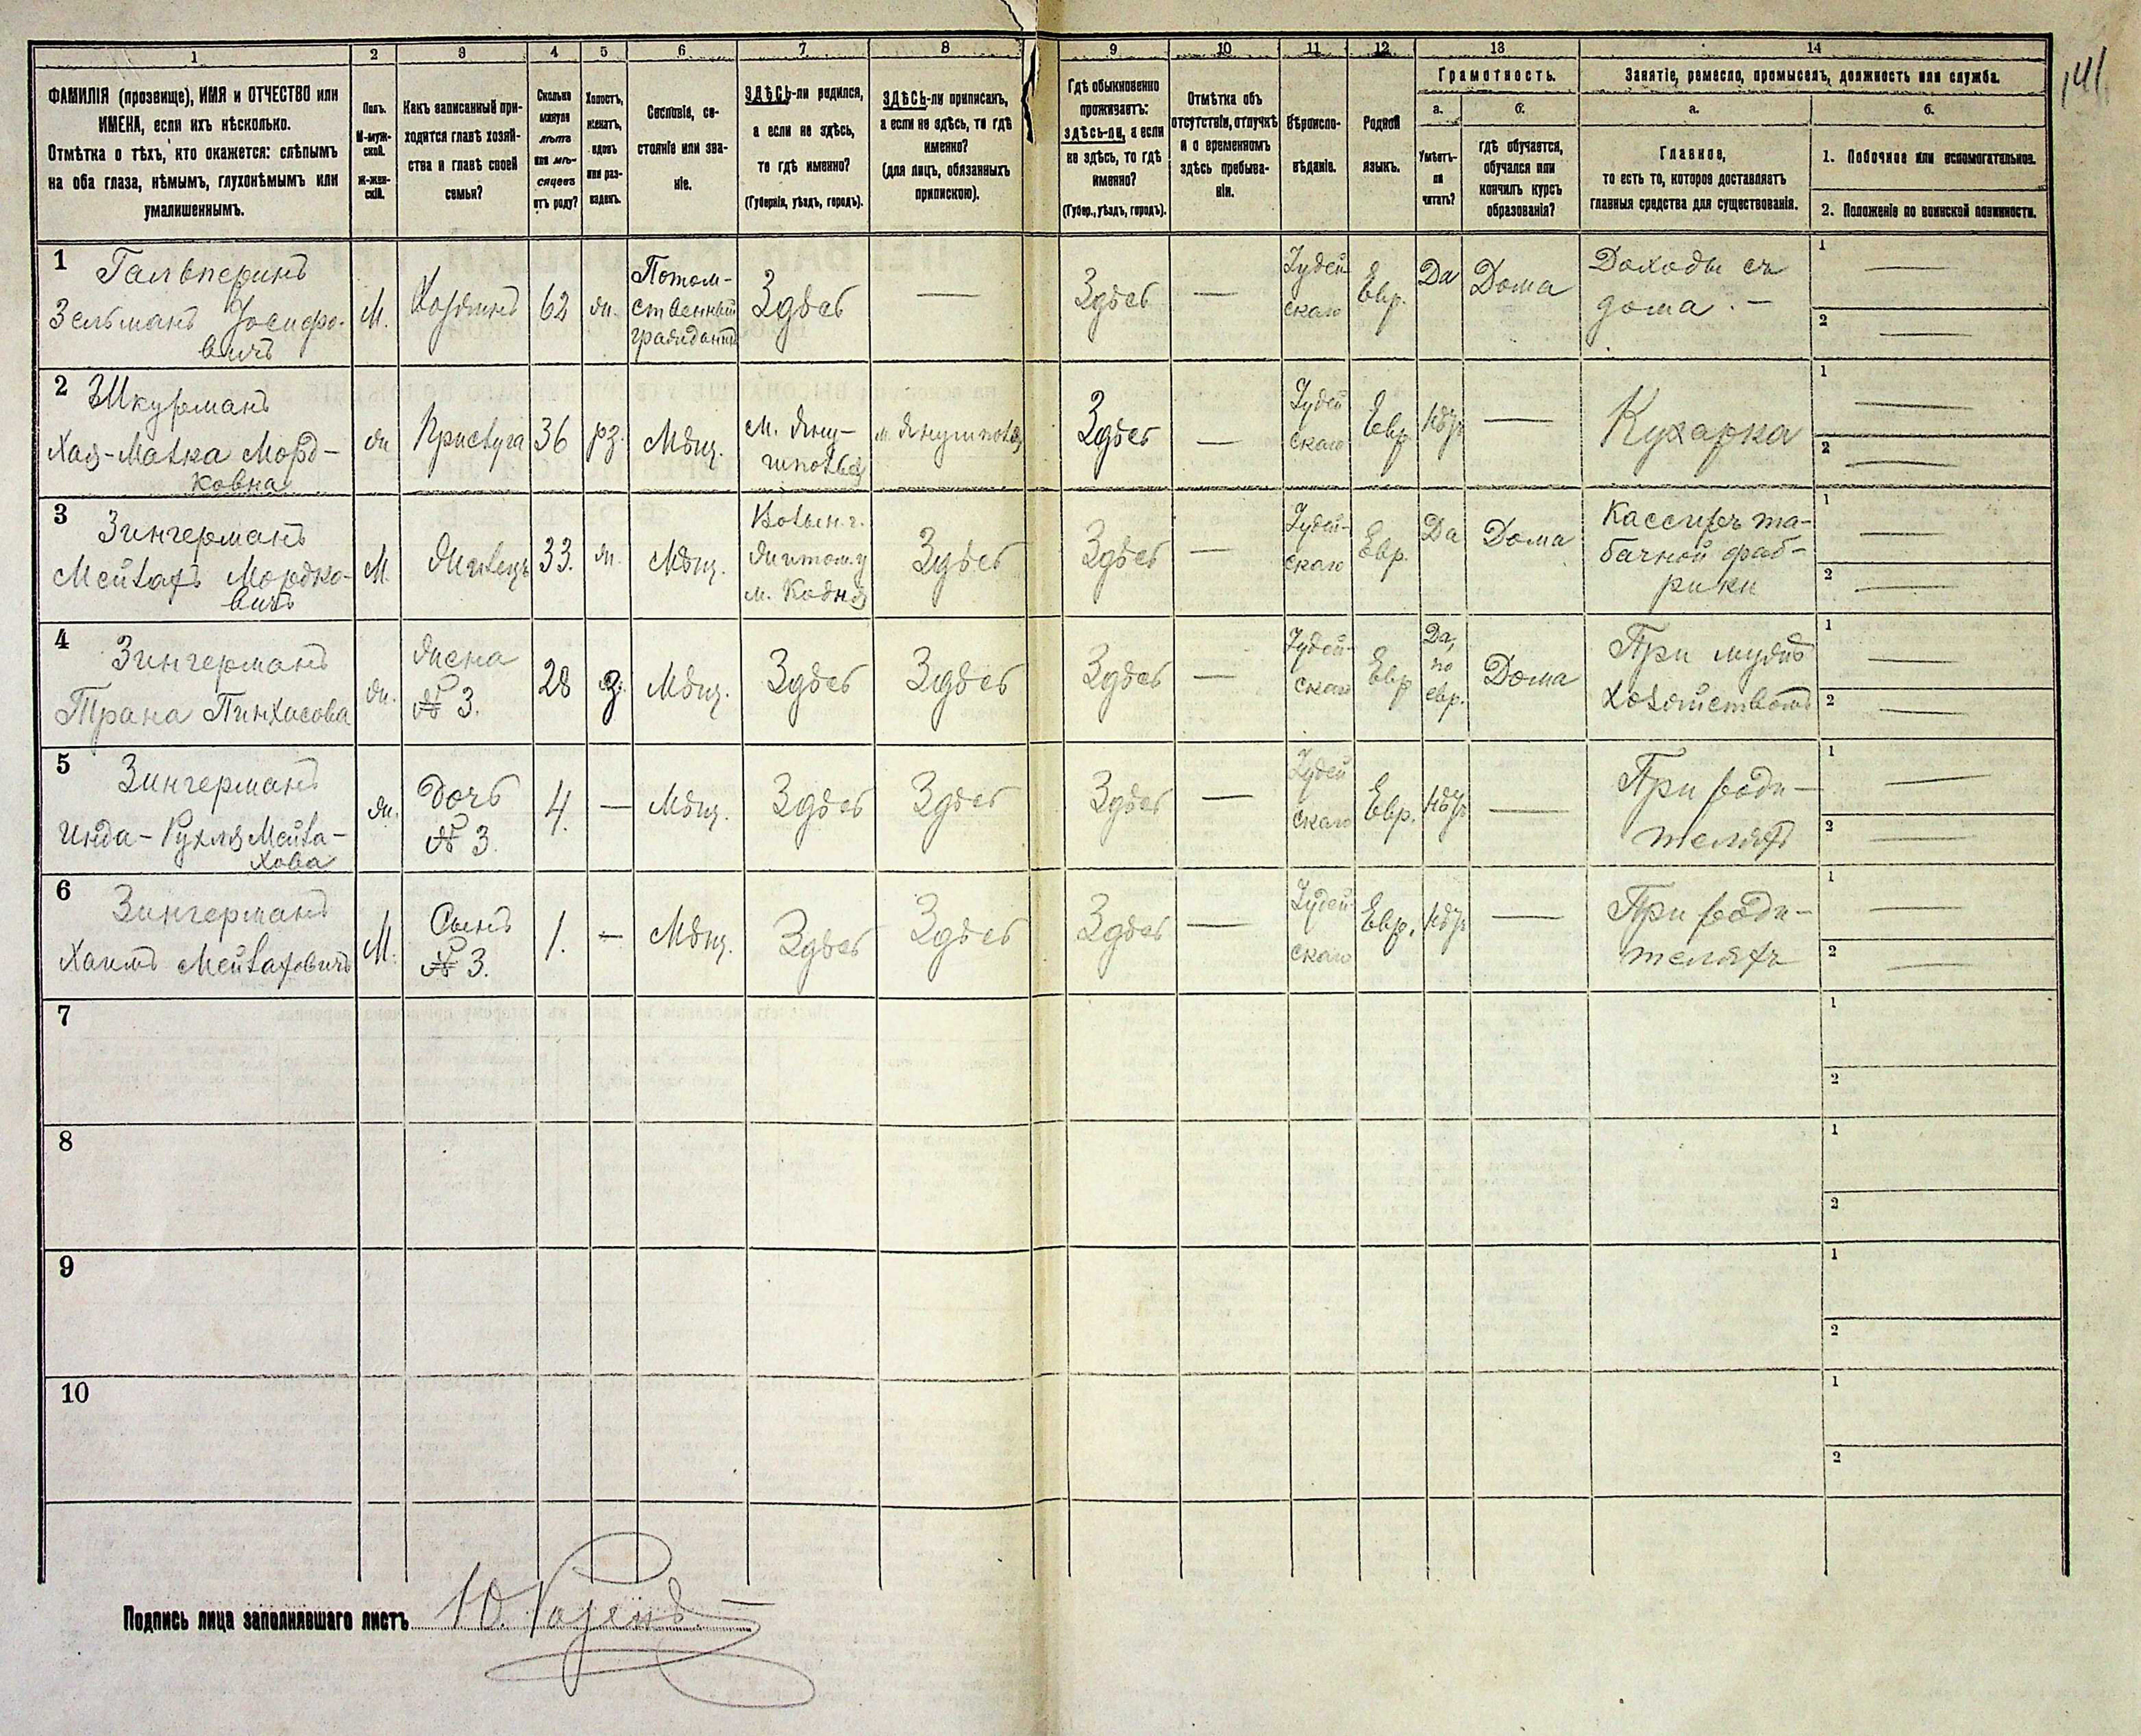 141.
1 2 3 4 5 6 7 8 9 10 11 12 13 14
ФАМИЛІЯ (прозвище), ИМЯ и ОТЧЕСТВО или
ИМЕНА, если ихъ нѣсколько.
Отмѣтка о тѣхъ, кто окажется: слѣпымъ
на оба глаза, нѣмымъ, глухонѣмымъ или
умалишеннымъ.
Полъ.
М-муж-
ской.
Ж-жен-
скій.
Какъ записанный при-
ходится главѣ хозяй-
ства и главѣ своей
семьи?
Сколько
минуло
лѣтъ
или мѣ-
сяцевъ
отъ роду?
Холостъ,
женатъ,
вдовъ
или раз-
веденъ.
Сословіе, со-
стояніе или зва-
ніе.
ЗДѢСЬ-ли родился,
а если не здѣсь,
то гдѣ именно?
(Губернія, уѣздъ, городъ).
ЗДѢСЬ-ли приписанъ,
а если не здѣсь, то гдѣ
именно?
(для лицъ, обязанныхъ
припискою).
Гдѣ обыкновенно
проживаетъ:
здѣсь-ли, а если
не здѣсь, то гдѣ
именно?
(Губер., уѣздъ, городъ).
Отмѣтка объ
отсутствіи, отлучкѣ
и о временномъ
здѣсь пребыва-
ніи.
Вѣроиспо-
вѣданіе.
Родной
языкъ.
Грамотность.
а.
Умѣетъ-
ли
читать?
б.
гдѣ обучается,
обучался или
кончилъ курсъ
образованія?
Занятіе, ремесло, промыселъ, должность или служба.
а.
Главное,
то есть то, которое доставляетъ
главныя средства для существованія.
б.
1. Побочное или вспомогательное.
2. Положеніе по воинской повинности.
1
Гальперинъ
Зельманъ Іосифо-
вичъ
М.
Хозяинъ
62
ж.
Потом-
ственный
гражданинъ
Здѣсь
—
Здѣсь
—
Іудей
скаго
Евр.
Да
Дома
Доходы съ
дома. —
1 —
2 —
2
Шкурманъ
Хая-Малка Морд-
ковна
ж
Прислуга
36
рз.
Мѣщ.
м. Яну-
шполья
м. Янушполья
Здѣсь
—
Іудей
скаго
Евр.
Нѣтъ
—
Кухарка
1 —
2 —
3
Зингерманъ
Мейлахъ Мордко-
вичъ
М.
Жилецъ
33.
ж.
Мѣщ.
Волын. г.
Житом. у
м. Кодня
Здѣсь
Здѣсь
—
Іудей-
скаго
Евр.
Да
Дома
Кассиръ та-
бачной фаб-
рики
1 —
2 —
4
Зингерманъ
Трана Пинхасова
ж.
Жена
№ 3.
28
з
Мѣщ.
Здѣсь
Здѣсь
Здѣсь
—
Іудей-
скаго
Евр
Да,
по
евр.
Дома
При мужѣ
хозяйствомъ
1 —
2 —
5
Зингерманъ
Рухля Мейла-
хова
ж.
Дочь
№ 3.
4.
—
Мѣщ.
Здѣсь
Здѣсь
Здѣсь
—
Іудей
скаго
Евр.
Нѣтъ
—
При роди-
теляхъ
1 —
2 —
6
Зингерманъ
Хаимъ Мейлаховичъ
М.
Сынъ
№ 3.
1.
—
Мѣщ.
Здѣсь
Здѣсь
Здѣсь
—
Іудей
скаго
Евр.
Нѣтъ
—
При роди-
теляхъ
1 —
2 —
7
1
2
8
1
2
9
1
2
10
1
2
Подпись лица заполнявшаго листъ Ю.